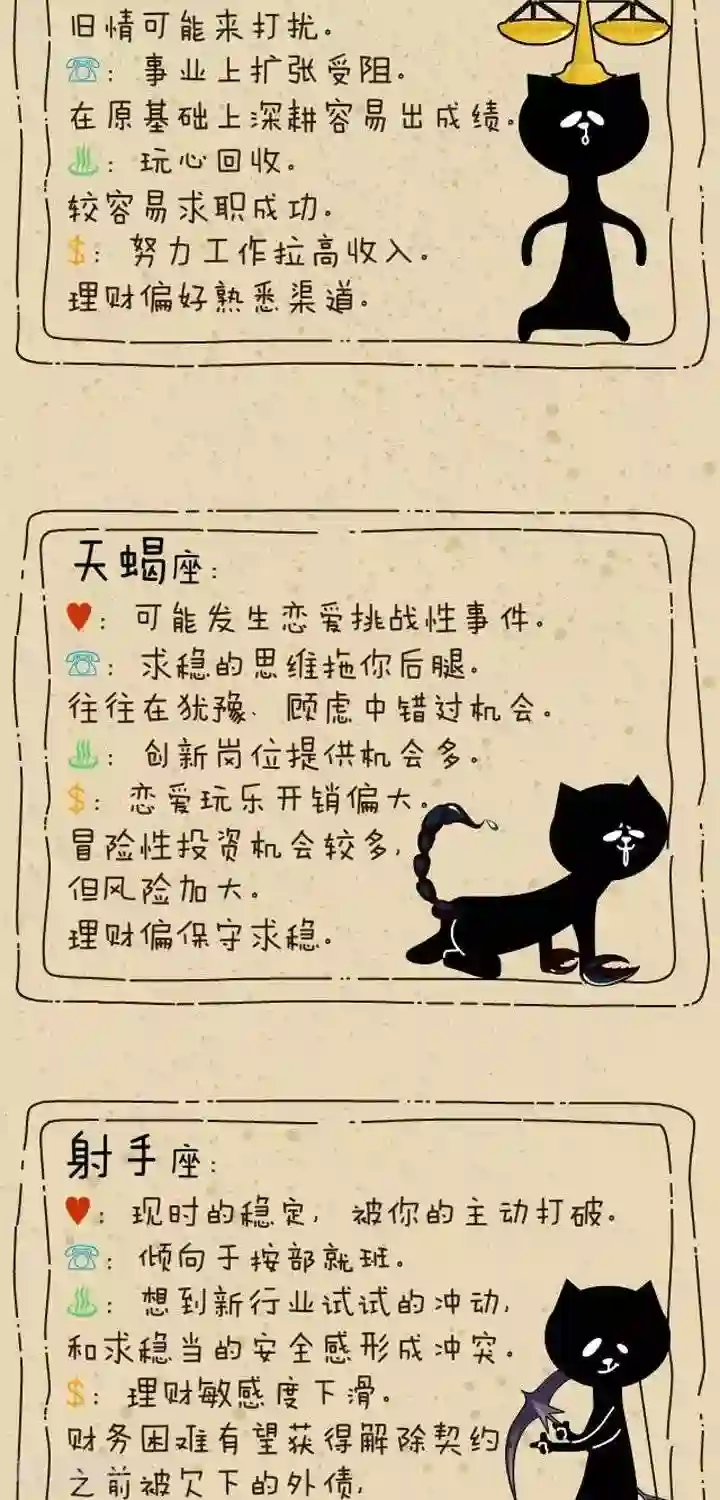 旧情可能来打扰。
☎：事业上扩张受阻。
在原基础上深耕容易出成绩。
♨：玩心回收。
较容易求职成功。
$：努力工作拉高收入。
理财偏好熟悉渠道。
天蝎座：
♥：可能发生恋爱挑战性事件。
☎：求稳的思维拖你后腿。
往往在犹豫、顾虑中错过机会。
♨：创新岗位提供机会多。
$：恋爱玩乐开销偏大。
冒险性投资机会较多，
但风险加大。
理财偏保守求稳。
射手座：
♥：现时的稳定，被你的主动打破。
☎：倾向于按部就班。
♨：想到新行业试试的冲动，
和求稳当的安全感形成冲突。
$：理财敏感度下滑。
财务困难有望获得解除契约
之前被欠下的外债，